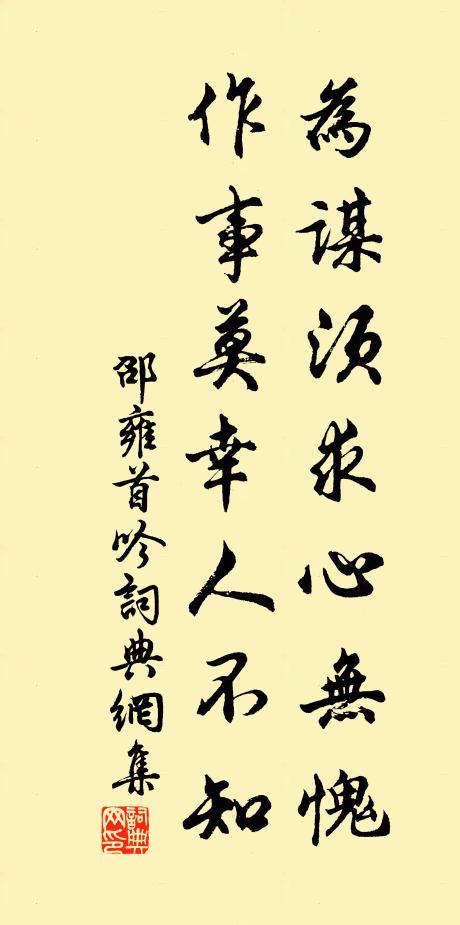 為謀須求心無愧
作事莫幸人不知
邵雍首吟詞典網集
詞典網印